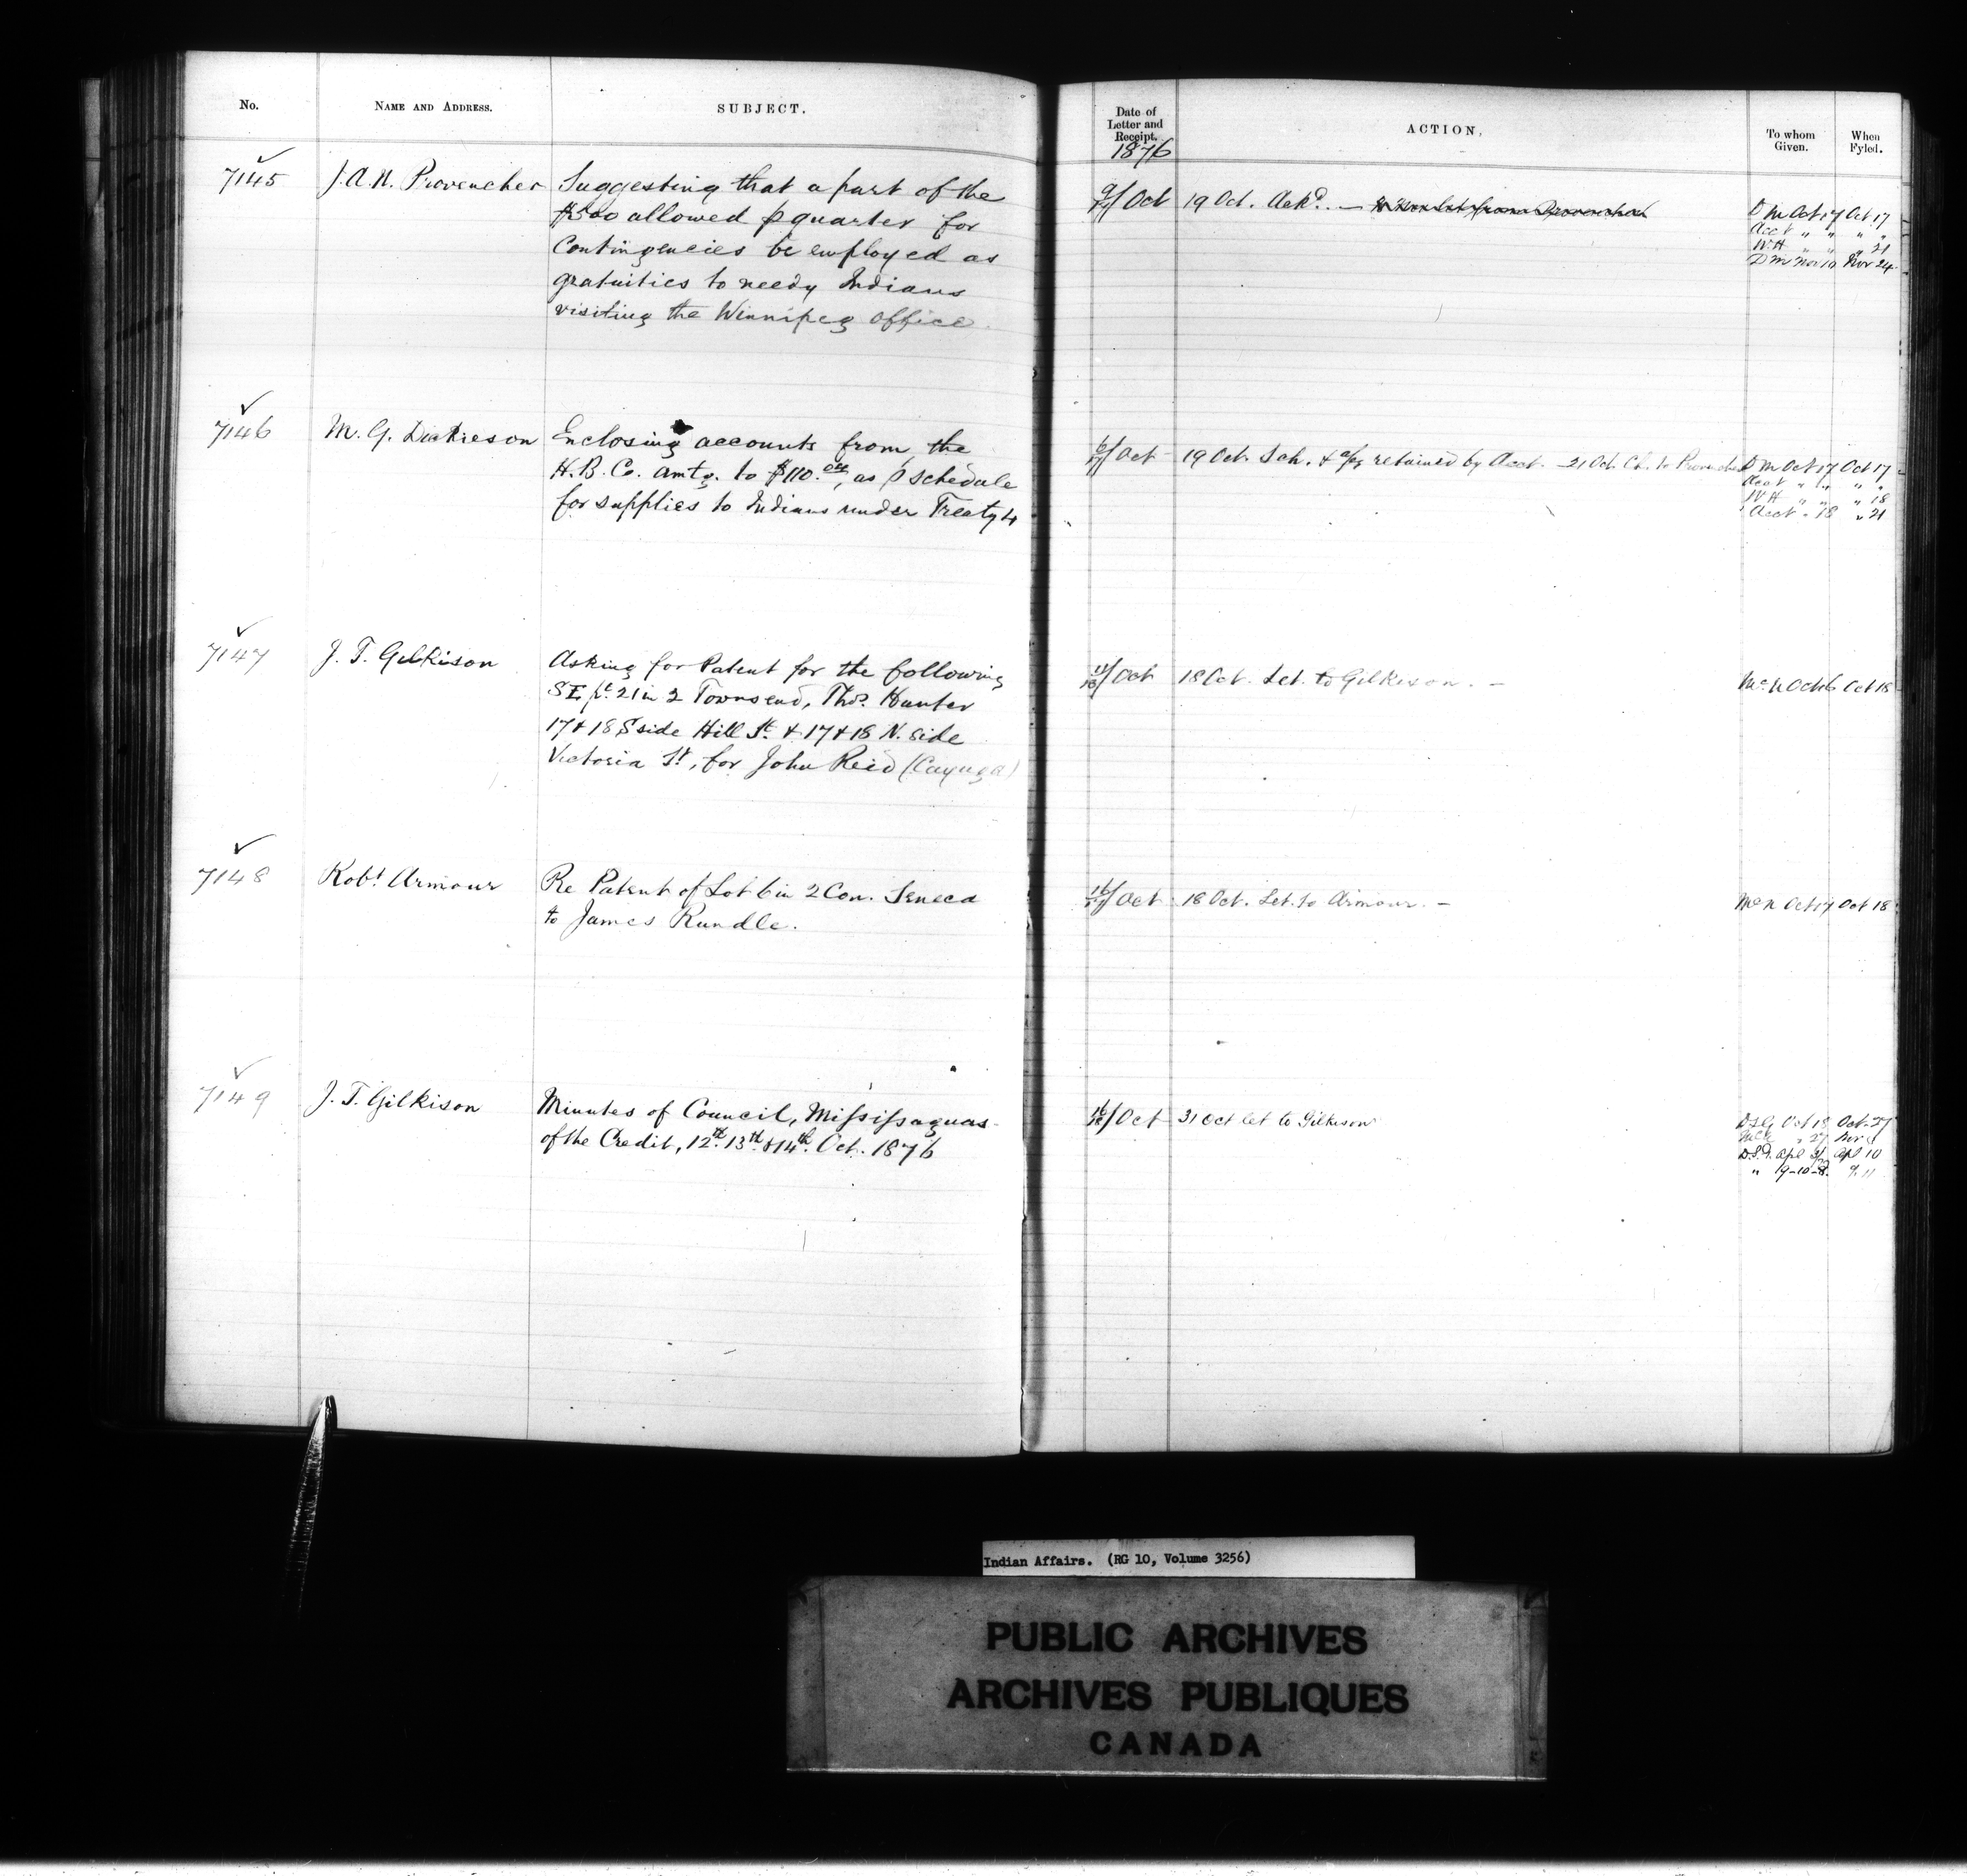 No.
NAME AND ADDRESS.
SUBJECT.
Date of
Letter and
Receipt.
1876
ACTION.
To whom
Given.
When
Fyled.
7145
J.A.N. Provencher
Suggesting that a part of the
$500 allowed p quarter for
Contingencies be employed as
gratuities to needy Indians
visiting the Winnipeg Office.
9/17 Oct
19 Oct. Ackd. —
D M Oct 17 Oct 17
Acct " " " "
W.H " " " 21
D M Nov 10 Nov 24
7146
M. G. Dickieson
Enclosing accounts from the
H.B. Co. amtg. to $110. as p schedule
for supplies to Indians under Treaty 4
6/17 Oct
19 Oct. Sch. & a/cs retained by Acct. — 21 Oct. Ch. to Provencher
D M Oct 17 Oct 17
Acct " " " "
W H " " " 18
Acct " 18 " 21
7147
J. T. Gilkison
Asking for Patent for the following
SE pt. 21 in 2 Townsend, Thos. Hunter
17 & 18 S side Hill St. & 17 & 18 N. side
Victoria St, for John Reid (Cayuga)
Oct
18 Oct. Let. to Gilkison. —
McN Oct 16 Oct 18
7148
Robt Armour
Re Patent of Lot 6 in 2 Con. Seneca
to James Rundle.
16/17 Oct
18 Oct. Let. to Armour. —
McN Oct 17 Oct 18
7149
J. T. Gilkison
Minutes of Council, Mississaguas
of the Credit, 12th. 13th & 14th. Oct. 1876
16/18 Oct
31 Oct let to Gilkison
D.S.G Oct 18 Oct. 27
" 27 Nov 1
Apl Apl 10
" 19-10-8
Indian Affairs. (RG 10, Volume 3256)
PUBLIC ARCHIVES
ARCHIVES PUBLIQUES
CANADA